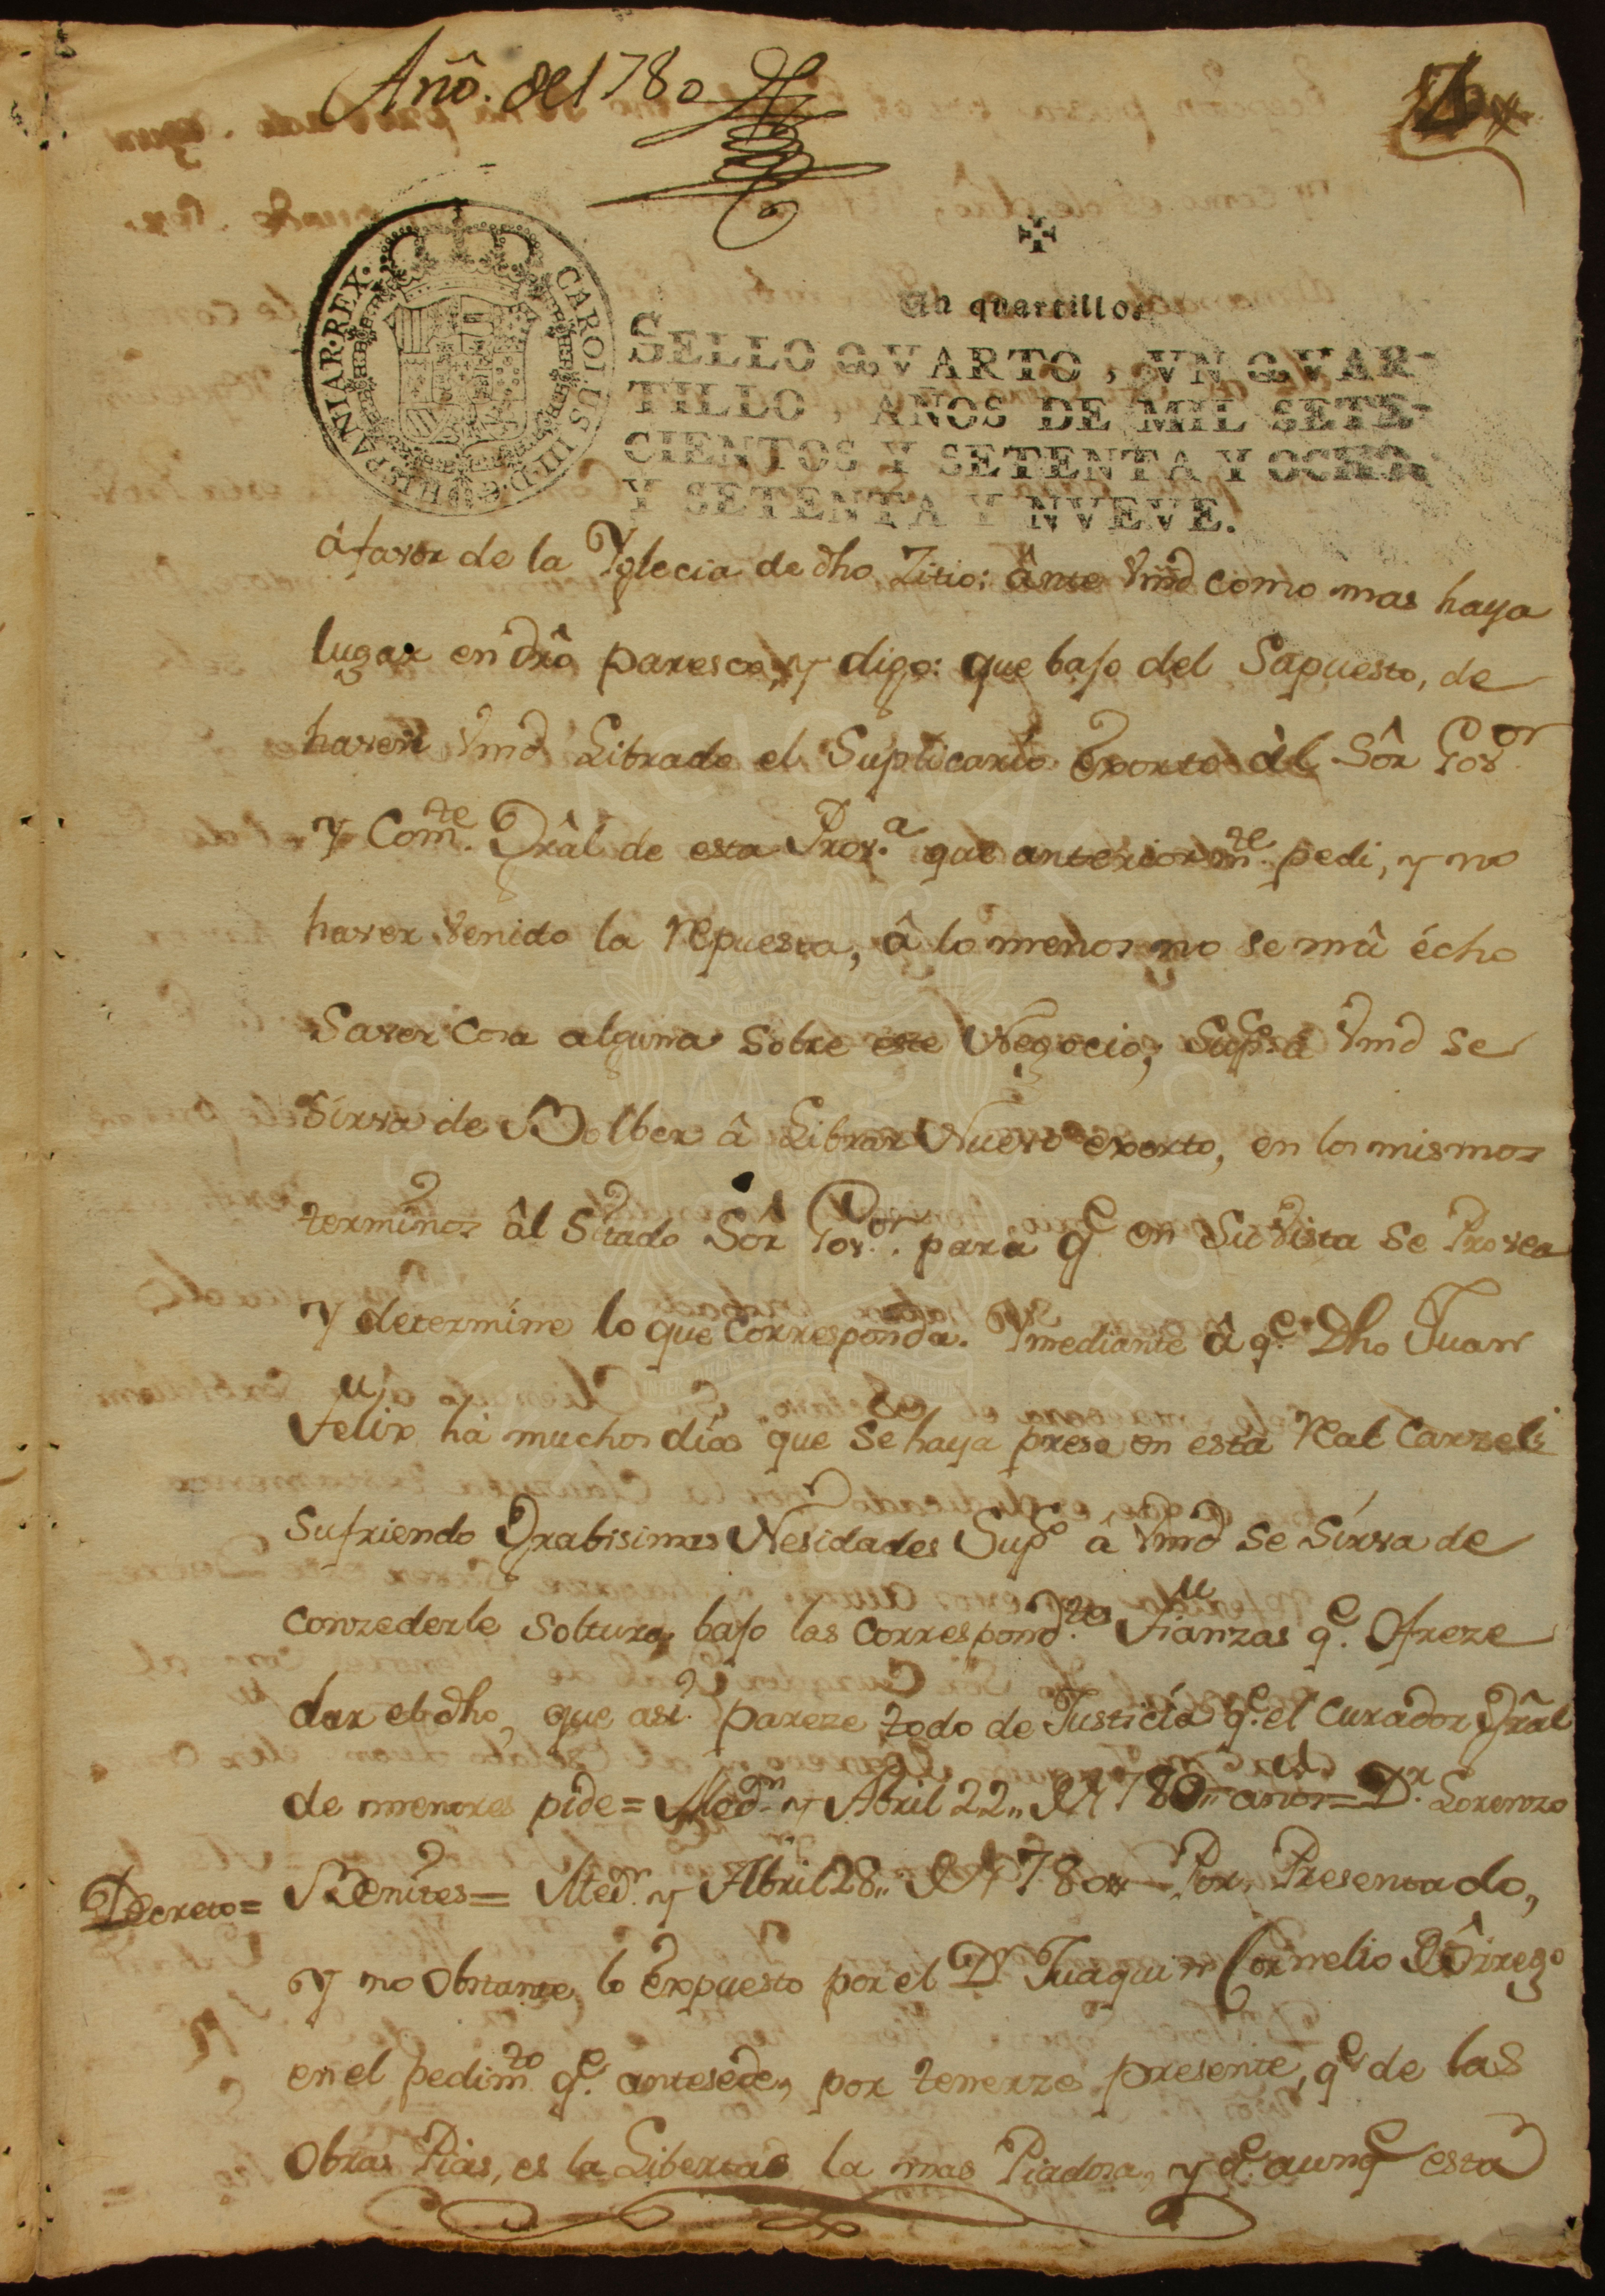 Anô. del 1780
Un quartillo.
CAROLUS III. D. G. HISPANIAR. REX.
SELLO QVARTO, VN QVAR-
TILLO, AÑOS DE MIL SETE-
CIENTOS Y SETENTA Y OCHO,
Y SETENTA Y NVEVE.
â favor de la Yglecia de dho Zitio: ânte Vmd como mas haya
lugar en drô paresco, y digo: que bajo del Supuesto, de
haver Vmd Librado el Suplicario Exorto âl Sôr Gov.or
y Com.te Grâl de esta Prov.a que anteriorm.te pedi, y no
haver venido la repuesta, â lo menos no se mâ écho
Saver cosa alguna sobre este Negocio, Sup.co a Vmd se
Sirva de Bolber â Librar Nuevo exorto, en los mismos
terminos âl Sitado Sôr Gov.or para q.e en Su Vista se Provea
y determine lo que Corresponda. Ymediante â q.e Dho Juan
Felix há muchos dias que se haya preso en esta Real Carzel
Sufriendo Grabisimas Nesidades Sup.co a Vmd se Sirva de
Conzederle Soltura, bajo las Correspond.tes Fianzas q.e Ofreze
dar el dho, que asi pareze todo de Justicia q.e el Curador Grâl
de menores pide = Med.n y Abril 22,, de 1780,, años = D.r Lorenzo
Decreto= Benites= Med.n y Abril 28,, de 1780 Por Presentado,
y no Obstante, lo Expuesto por el D.r Juaquin Cornelio
en el pedim.to q.e antesede, por tenerze presente, q.e de las
Obras Pias, es la Libertad la mas Piadosa, y q.e aunq.e esta